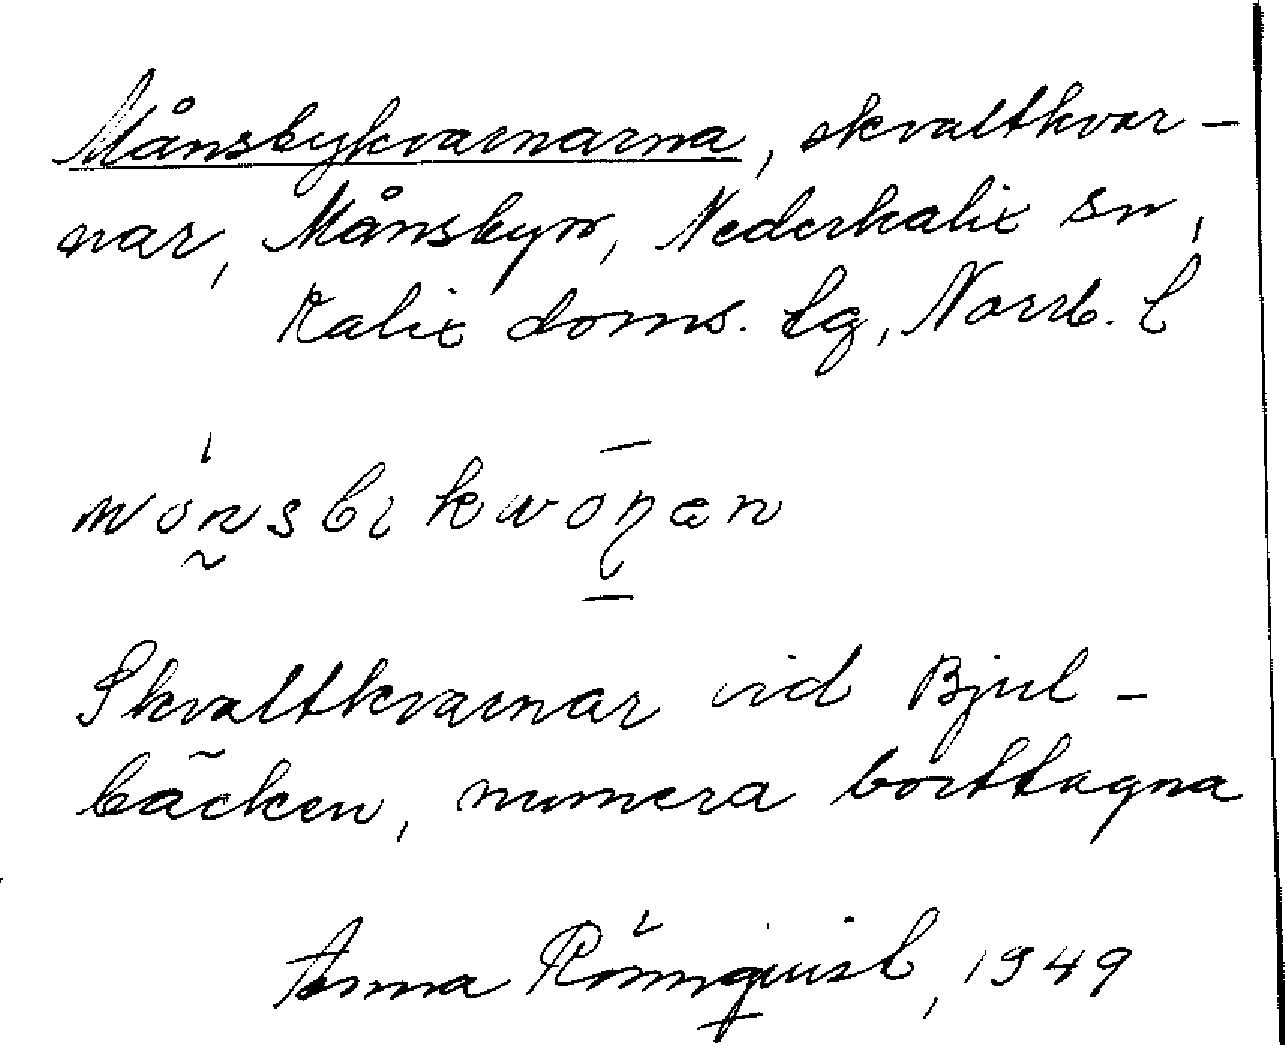 Månsbykvarnarna, skvaltkvar-
nar, Månsbyn, Nederkalix sn,
Kalix doms. lg, Norrb. l
Skvaltkvarnar vid Bjul-
bäcken, numera borttagna
Anna Rönnquist, 1949